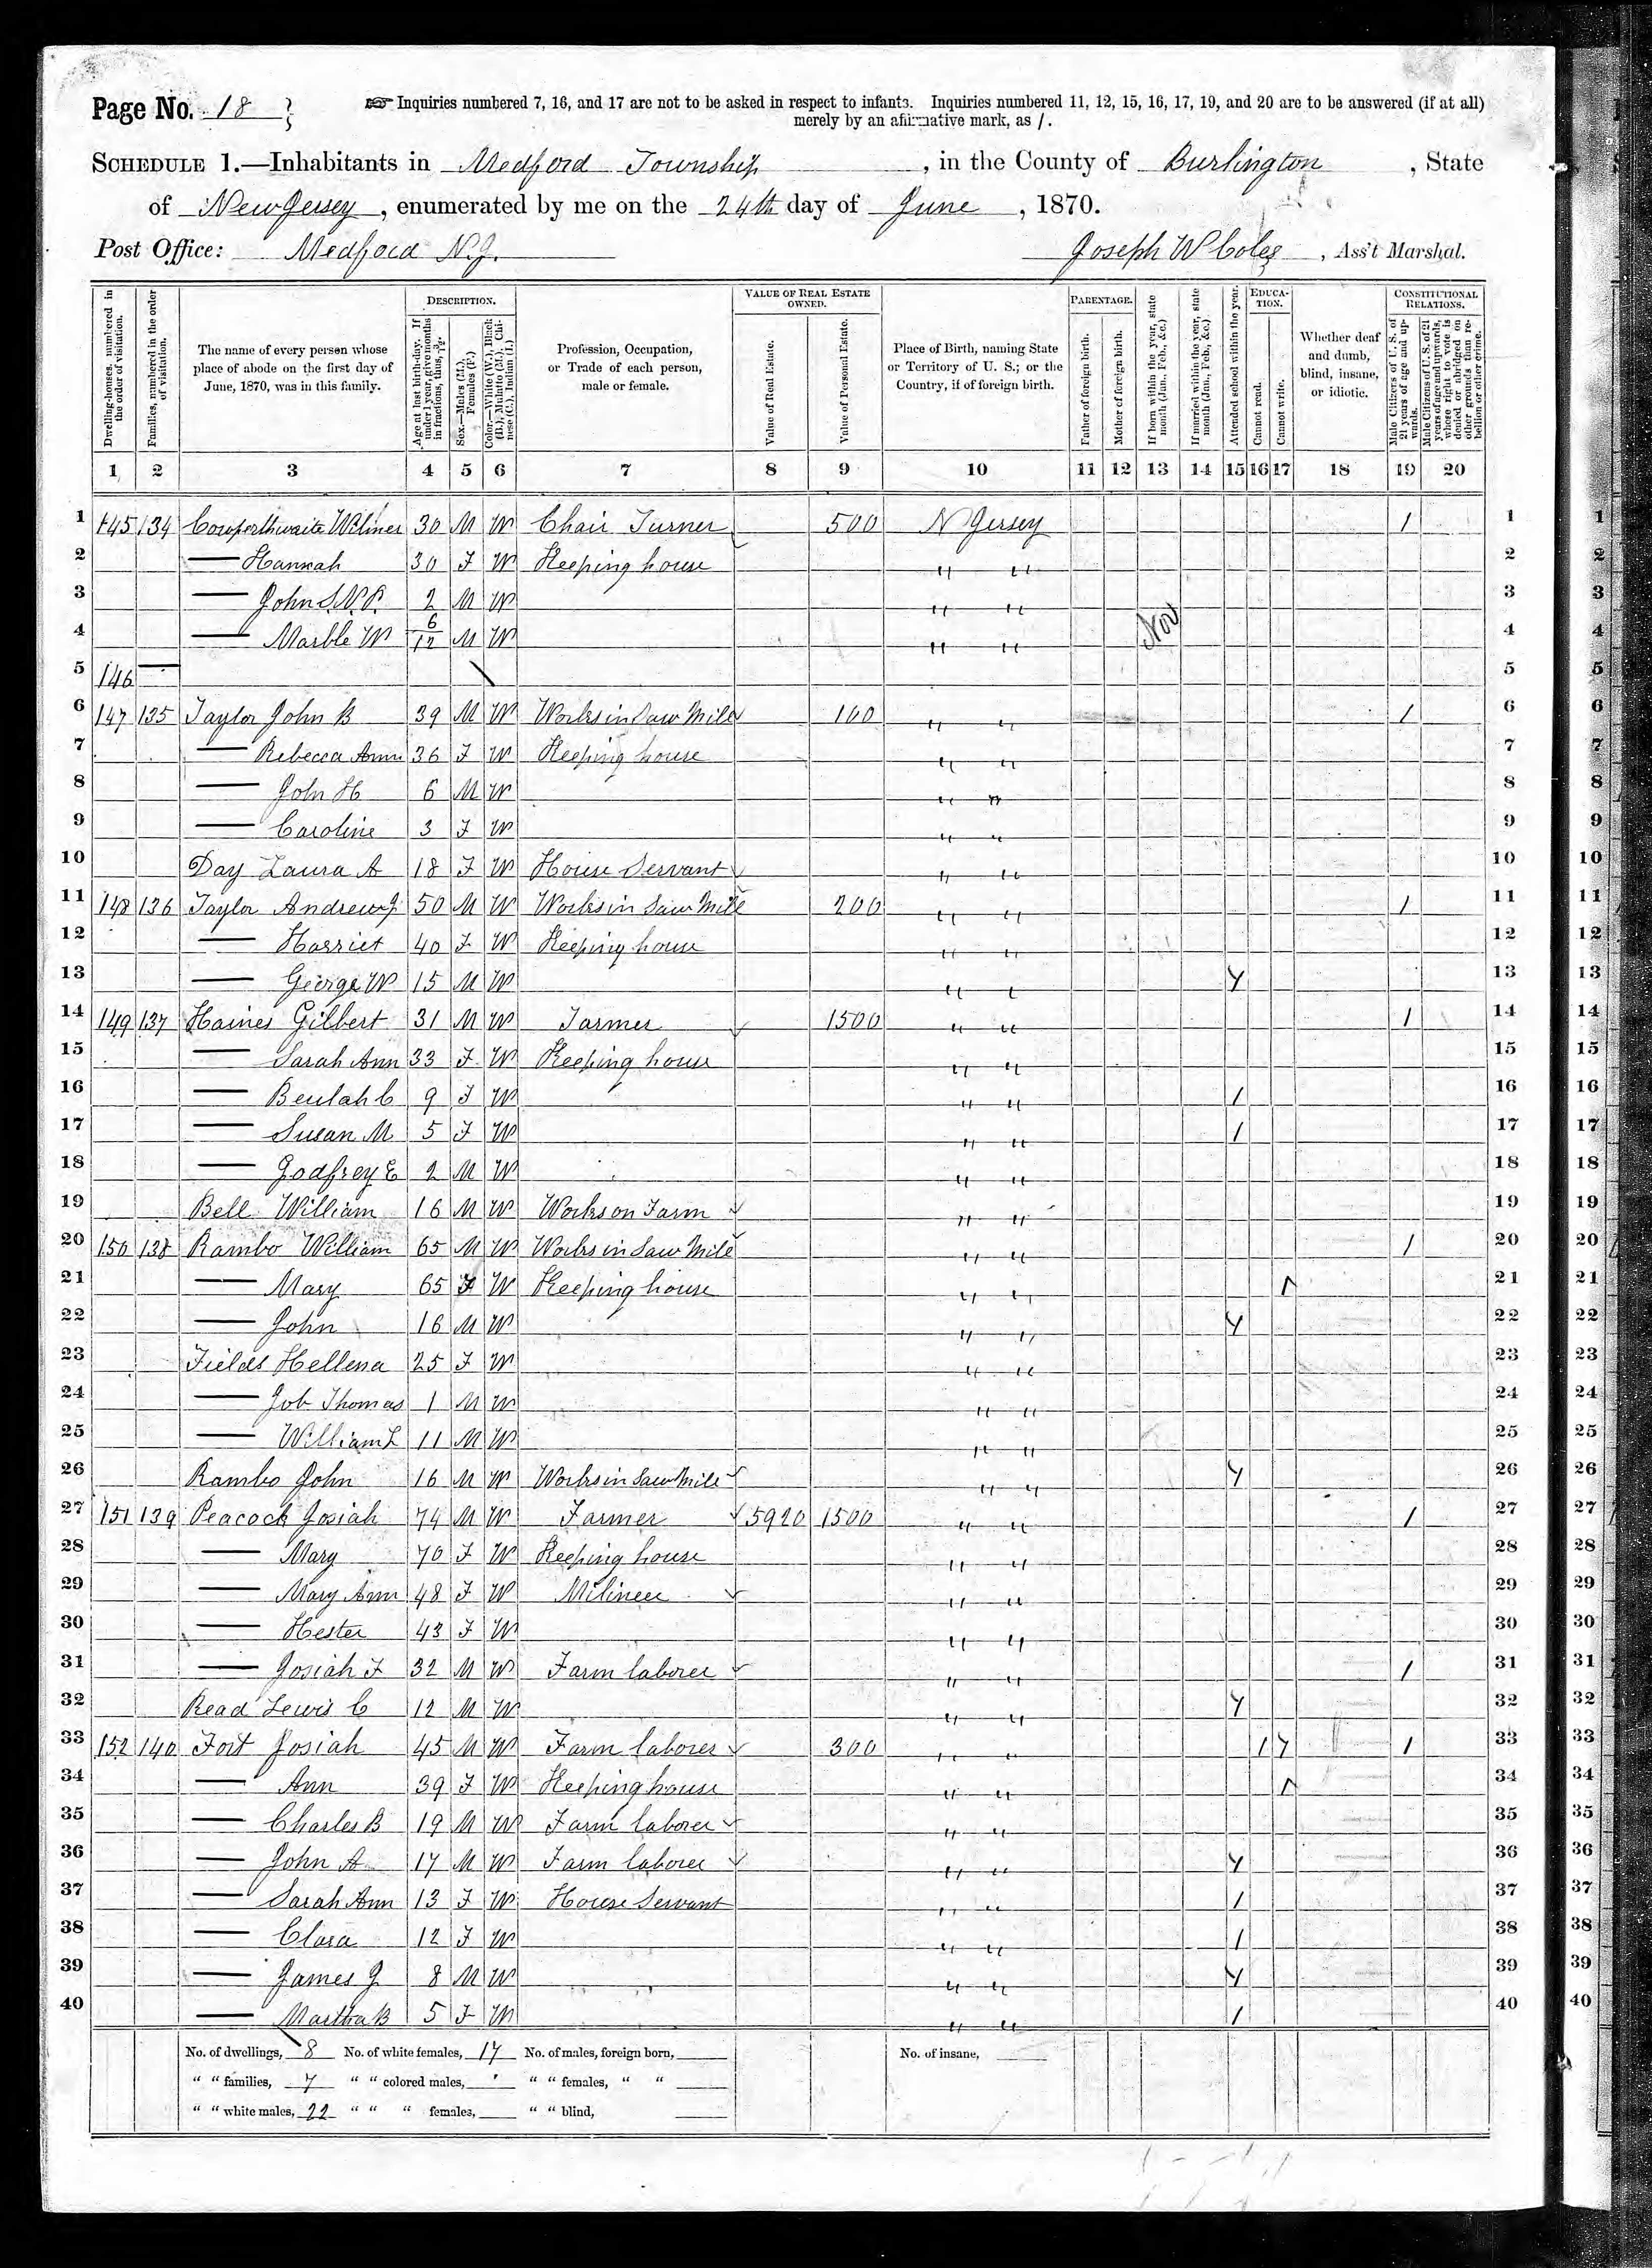 Page No. 18
Inquiries numbered 7, 16, and 17 are not to be asked in respect to infants. Inquiries numbered 11, 12, 15, 16, 17, 19, and 20 are to be answered (if at all)
merely by an affirmative mark, as /.
SCHEDULE 1.—Inhabitants in Medford Township, in the County of Burlington, State
of New Jersey, enumerated by me on the 24th day of June, 1870.
Post Office: Medford N.J. Joseph W Coles, Ass't Marshal.
Dwelling-houses, numbered in the order of visitation.
Families, numbered in the order of visitation.
The name of every person whose place of abode on the first day of June, 1870, was in this family.
DESCRIPTION.
Age at last birth-day. If under 1 year, give months in fractions, thus, 3/12.
Sex.—Males (M.), Females (F.)
Color.—White (W.), Black (B.), Mulatto (M.), Chinese (C.), Indian (I.)
Profession, Occupation, or Trade of each person, male or female.
VALUE OF REAL ESTATE OWNED.
Value of Real Estate.
Value of Personal Estate.
Place of Birth, naming State or Territory of U. S.; or the Country, if of foreign birth.
PARENTAGE.
Father of foreign birth.
Mother of foreign birth.
If born within the year, state month (Jan., Feb., &c.)
If married within the year, state month (Jan., Feb., &c.)
Attended school within the year.
EDUCATION.
Cannot read.
Cannot write.
Whether deaf and dumb, blind, insane, or idiotic.
CONSTITUTIONAL RELATIONS.
Male Citizens of U. S. of 21 years of age and upwards.
Male Citizens of U. S. of 21 years of age and upwards, whose right to vote is denied or abridged on other grounds than rebellion or other crime.
1 2 3 4 5 6 7 8 9 10 11 12 13 14 15 16 17 18 19 20
1 145 134 Cowperthwaite Wilmer 30 M W Chair Turner 500 N Jersey / 1
2 — Hannah 30 F W Keeping house " " 2
3 — John S.N.P. 2 M W " " 3
4 — Marble W 6/12 M W " " Nov 4
5 146 — 5
6 147 135 Taylor John B 39 M W Works in Saw Mill 100 " " / 6
7 — Rebecca Ann 36 F W Keeping house " " 7
8 — John H 6 M W " " 8
9 — Caroline 3 F W " " 9
10 Day Laura A 18 F W House Servant " " 10
11 148 136 Taylor Andrew J 50 M W Works in Saw Mill 200 " " / 11
12 — Harriet 40 F W Keeping house " " 12
13 — George W 15 M W " " / 13
14 149 137 Haines Gilbert 31 M W Farmer 1500 " " / 14
15 — Sarah Ann 33 F W Keeping house " " 15
16 — Beulah C 9 F W " " / 16
17 — Susan M 5 F W " " / 17
18 — Godfrey E 2 M W " " 18
19 Bell William 16 M W Works on Farm " " 19
20 150 138 Rambo William 65 M W Works in Saw Mill " " / 20
21 — Mary 65 F W Keeping house " " / 21
22 — John 16 M W " " / 22
23 Fields Hellena 25 F W " " 23
24 — Job Thomas 1 M W " " 24
25 — William L 11 M W " " 25
26 Rambo John 16 M W Works in Saw Mill " " / 26
27 151 139 Peacock Josiah 74 M W Farmer 5920 1500 " " / 27
28 — Mary 70 F W Keeping house " " 28
29 — Mary Ann 48 F W Milineer " " 29
30 — Hester 43 F W " " 30
31 — Josiah F 32 M W Farm laborer " " / 31
32 Read Lewis C 12 M W " " / 32
33 152 140 Fort Josiah 45 M W Farm laborer 300 " " / / / 33
34 — Ann 39 F W Keeping house " " / 34
35 — Charles B 19 M W Farm laborer " " 35
36 — John A 17 M W Farm laborer " " / 36
37 — Sarah Ann 13 F W House Servant " " / 37
38 — Clara 12 F W " " / 38
39 — James J 8 M W " " / 39
40 — Martha B 5 F W " " / 40
No. of dwellings, 8 No. of white females, 17 No. of males, foreign born, No. of insane,
" " families, 7 " " colored males, " " females, " "
" " white males, 22 " " " females, " " blind,